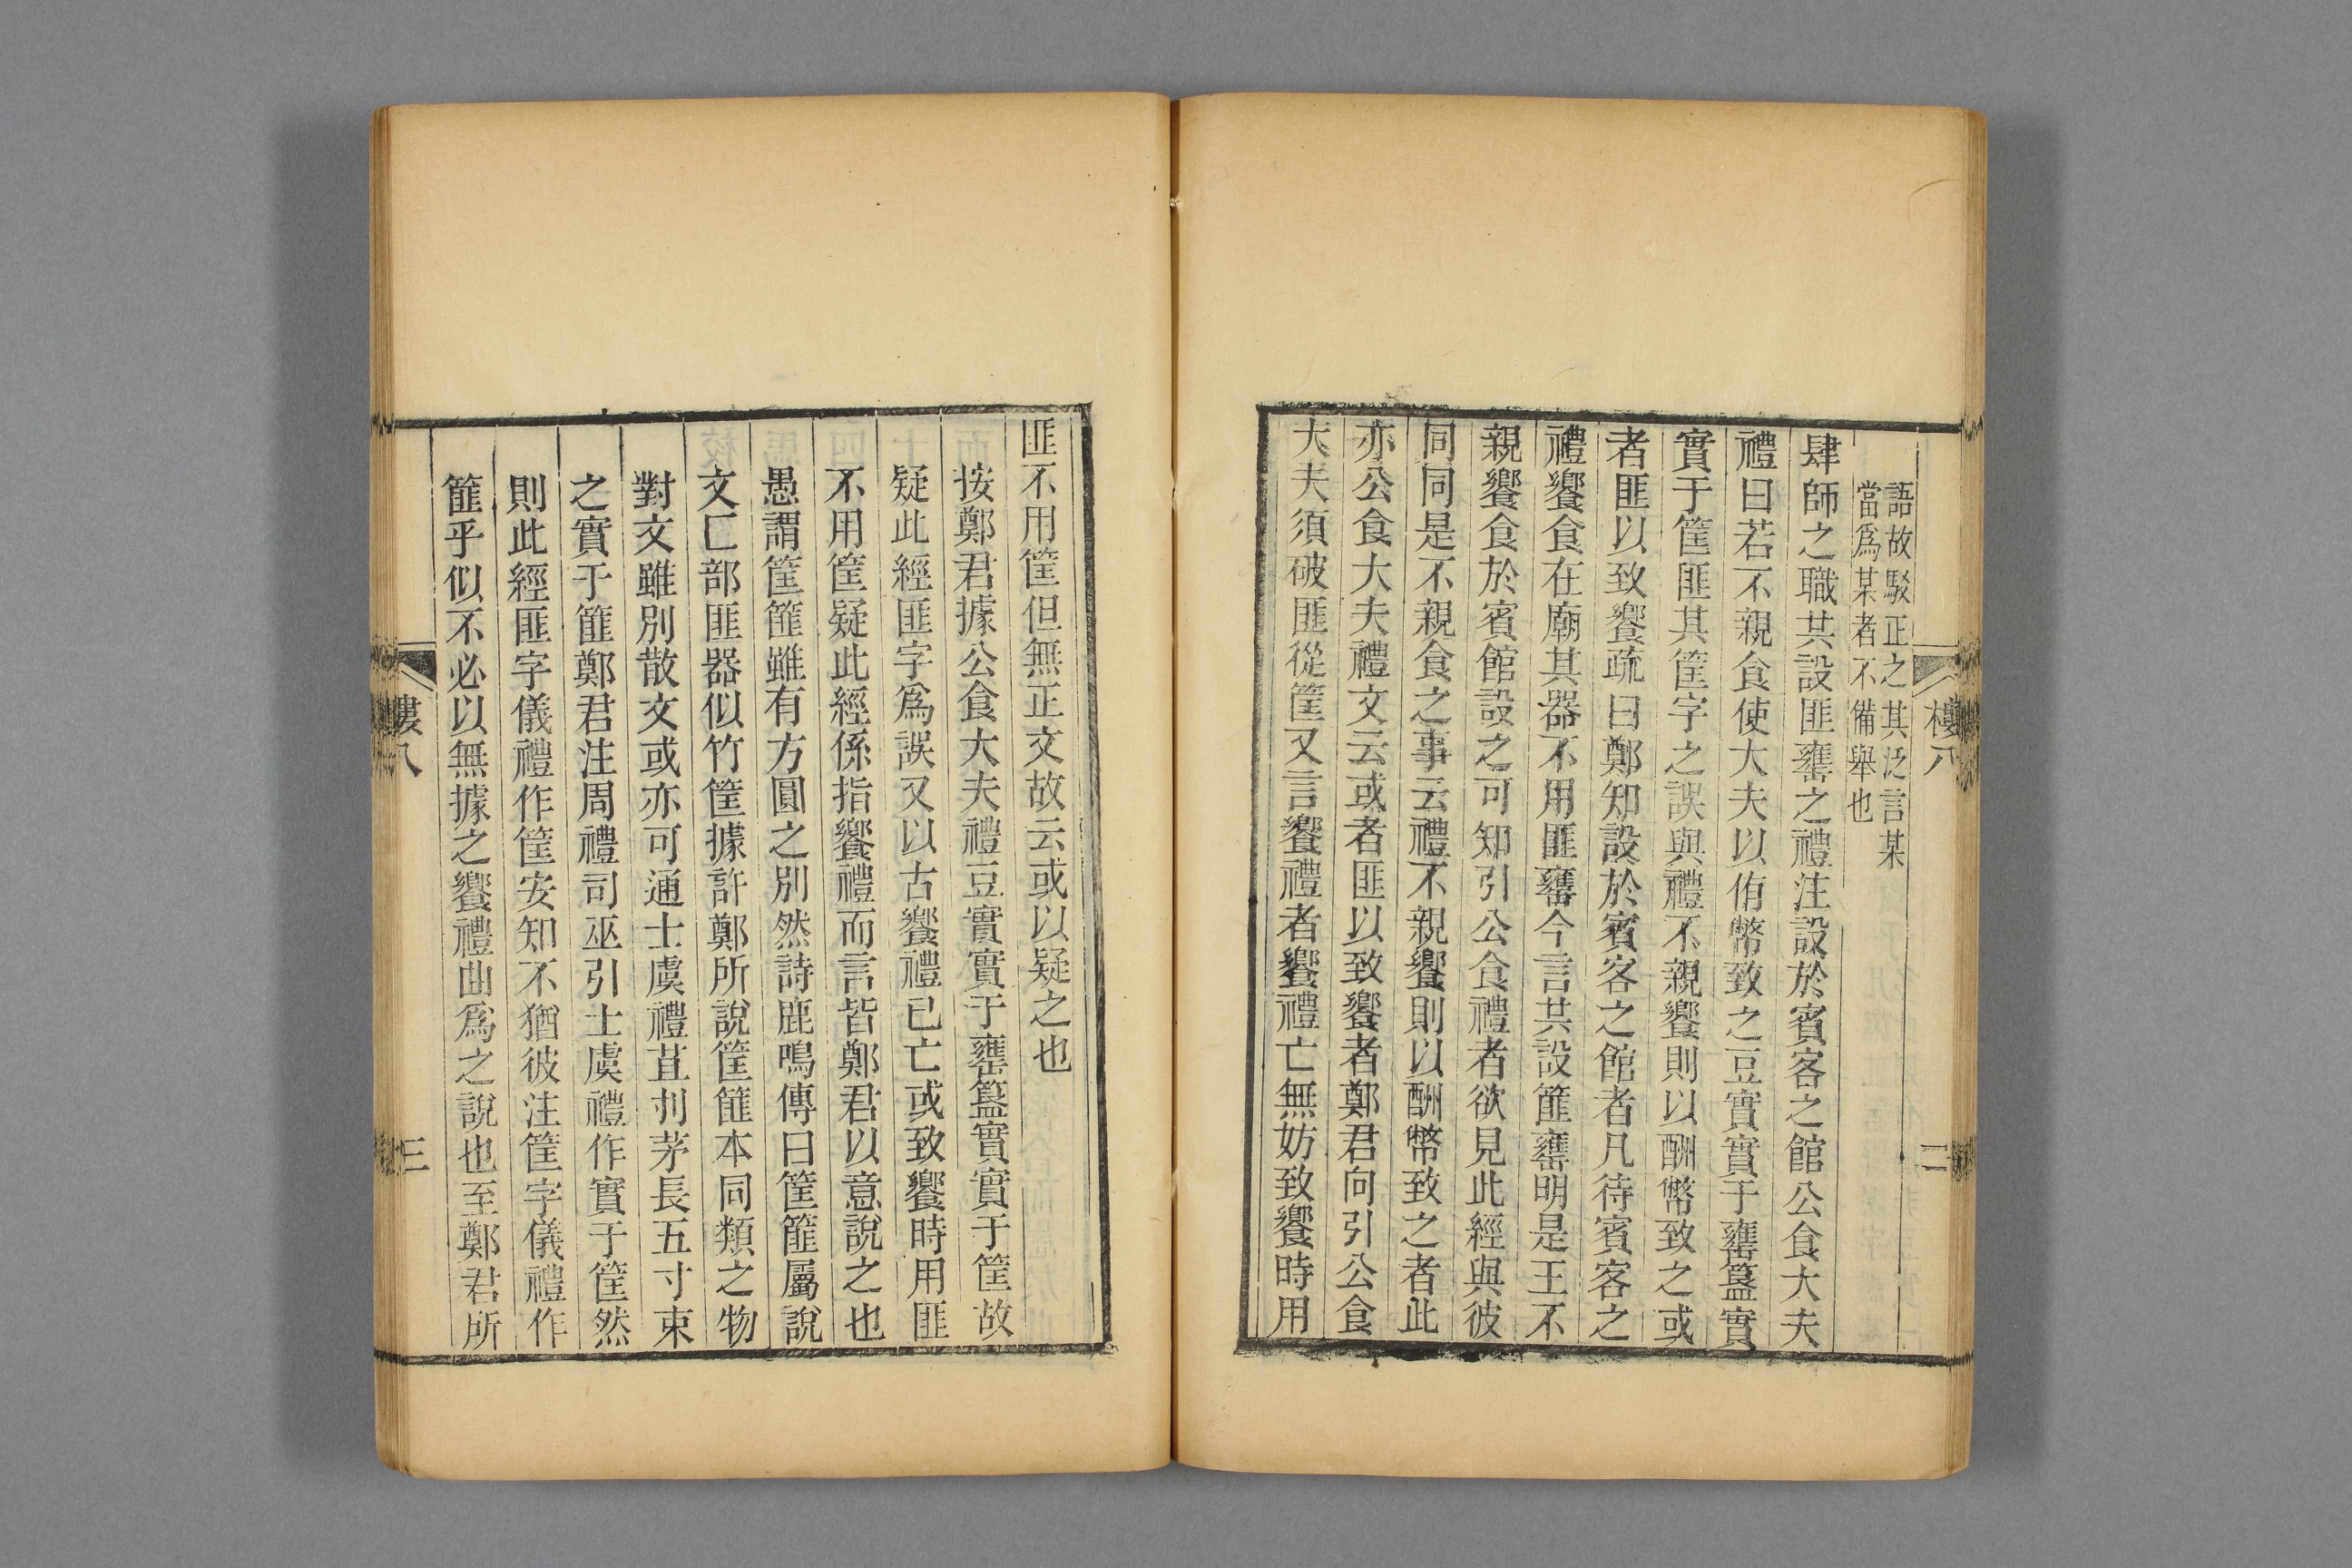 語故駁正之其泛言某
當爲某者不備舉也
肆師之職共設匪罋之禮注設於賓客之館公食大夫
禮曰若不親食使大夫以侑幣致之豆實實于罋簋實
實于筐匪其筐字之誤與禮不親饗則以酬幣致之或
者匪以致饗疏曰鄭知設於賓客之館者凡待賓客之
禮饗食在廟其器不用匪罋今言共設篚罋明是王不
親饗食於賓館設之可知引公食禮者欲見此經與彼
同同是不親食之事云禮不親饗則以酬幣致之者此
亦公食大夫禮文云或者匪以致饗者鄭君向引公食
大夫須破匪從筐又言饗禮者饗禮亡無妨致饗時用
樓八
二
匪不用筐但無正文故云或以疑之也
按鄭君據公食大夫禮豆實實于罋簋實實于筐故
疑此經匪字爲誤又以古饗禮已亡或致饗時用匪
不用筐疑此經係指饗禮而言皆鄭君以意說之也
愚謂筐篚雖有方圓之別然詩鹿鳴傳曰筐篚屬說
文匚部匪器似竹筐據許鄭所說筐篚本同類之物
對文雖別散文或亦可通士虞禮苴刌茅長五寸束
之實于篚鄭君注周禮司巫引士虞禮作實于筐然
則此經匪字儀禮作筐安知不猶彼注筐字儀禮作
篚乎似不必以無據之饗禮曲爲之說也至鄭君所
樓八
三